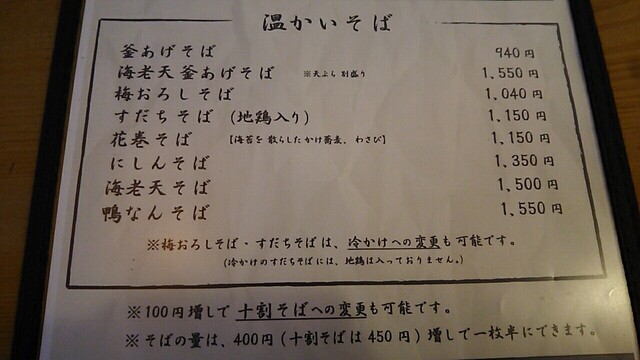 温かいそば
釜あげそば 940円
海老天釜あげそば ※天ぷら別盛り 1,550円
梅おろしそば 1,040円
すだちそば (地鶏入り) 1,150円
花巻そば 【海苔を散らしたかけ蕎麦、わさび】 1,150円
にしんそば 1,350円
海老天そば 1,500円
鴨なんそば 1,550円
※梅おろしそば・すだちそばは、冷かけへの変更も可能です。
(冷かけのすだちそばには、地鶏は入っておりません。)
※100円増しで十割そばへの変更も可能です。
※そばの量は、400円(十割そばは450円)増しで一枚半にできます。